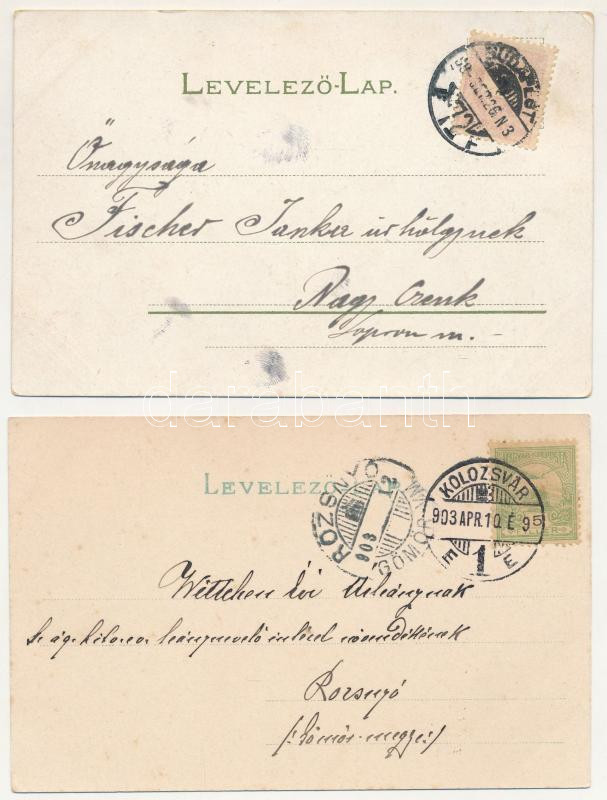 LEVELEZŐ-LAP.
BUDAPEST
Önagysága
Fischer Janka úrhölgynek
Nagy Czenk
Sopron m.
darabanth
LEVELEZŐ-LAP.
RÓZSNYÓ
GÖMÖR VM
903
12
KOLOZSVÁR
903 APR. 10. É 95
1
Wittchen Évi Úrleánynak
leánynevelő intézet növendékének
Rozsnyó
(:Gömör-megye:)